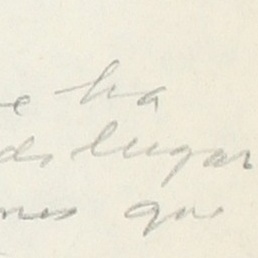 e ha
ds lugar
nes que